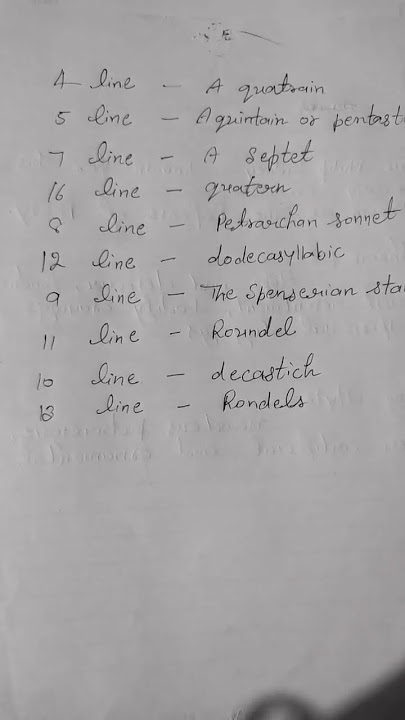 4 line - A quatrain
5 line - A quintain or pentast
7 line - A Septet
16 line - quatern
8 line - Petrarchan sonnet
12 line - dodecasyllabic
9 line - The Spenserian sta
11 line - Roundel
10 line - decastich
13 line - Rondels